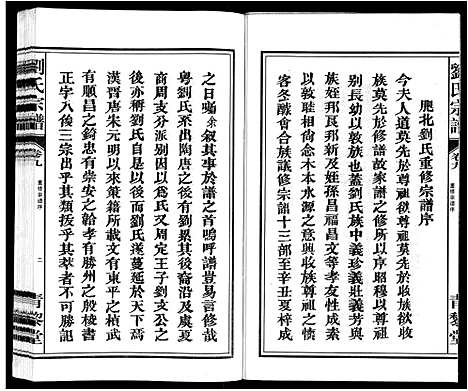 劉氏宗譜
卷九
青黎堂
應北劉氏重修宗譜序
今夫人道莫先於尊祖尊祖莫先於收族欲收
族莫先於修譜故家譜之修所以序昭穆
別長幼以尊祖敬族也蓋劉氏族中義珍義壯義芳與
族姪邦良邦新及姪孫昌福昌文等孝友性成
敦敘居心每念木本水源之誼以興收族尊祖之情
客冬醵會合族議修宗譜十三部至辛丑夏梓成
之日囑余敘其事於譜之首嗚呼譜豈易言修哉
粵劉氏系出陶唐之後有劉累其後裔沿及虞夏
商周支分派別因以爲氏又周定王子劉支公之
後亦稱劉氏自是以後而劉氏遂蔓延於天下焉
漢晉唐朱元明以來策籍所載文有東平之楨武
有順昌之錡忠有崇安之韐孝有滕州之殷稜書
正字八後三宗出乎其類拔乎其萃者不可勝記
劉氏宗譜
卷九
重修宗譜序
二
青黎堂